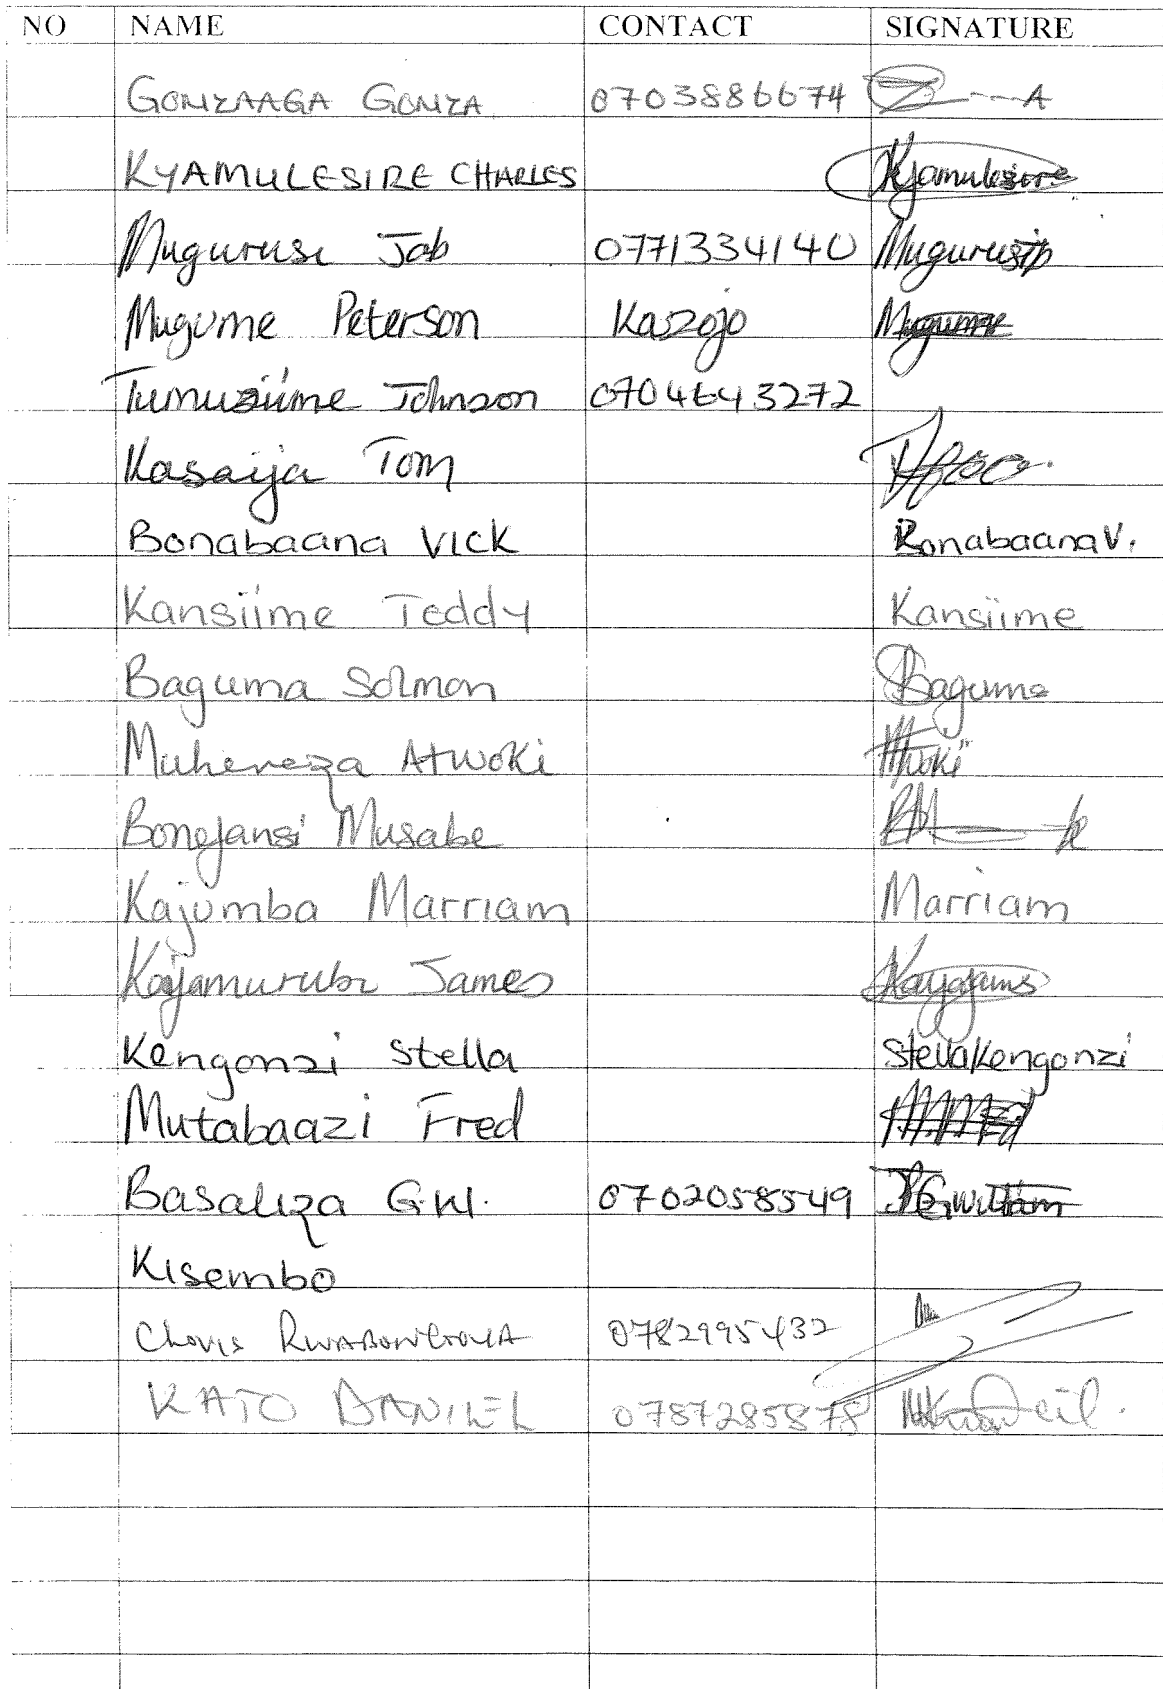 NO NAME CONTACT SIGNATURE
GONZAAGA GONZA 0703886674
KYAMULESIRE CHARLES Kyamulesire
Mugurusi Job 0771334140 Mugurusi
Mugume Peterson Kazojo Mugume
Tumuziime Johnson 0704643272
Kasaija Tom
Bonabaana VICK Bonabaana V.
Kansiime Teddy Kansiime
Baguma Solmon Baguma
Muhereza Atwoki Atwoki
Bonejansi Musabe
Kajumba Marriam Marriam
James
Kengonzi Stella Stella Kengonzi
Mutabaazi Fred
Basaliza G.W. 0702058549 William
Kisembo
Clovis 0782995432
KATO DANIEL 0787285878